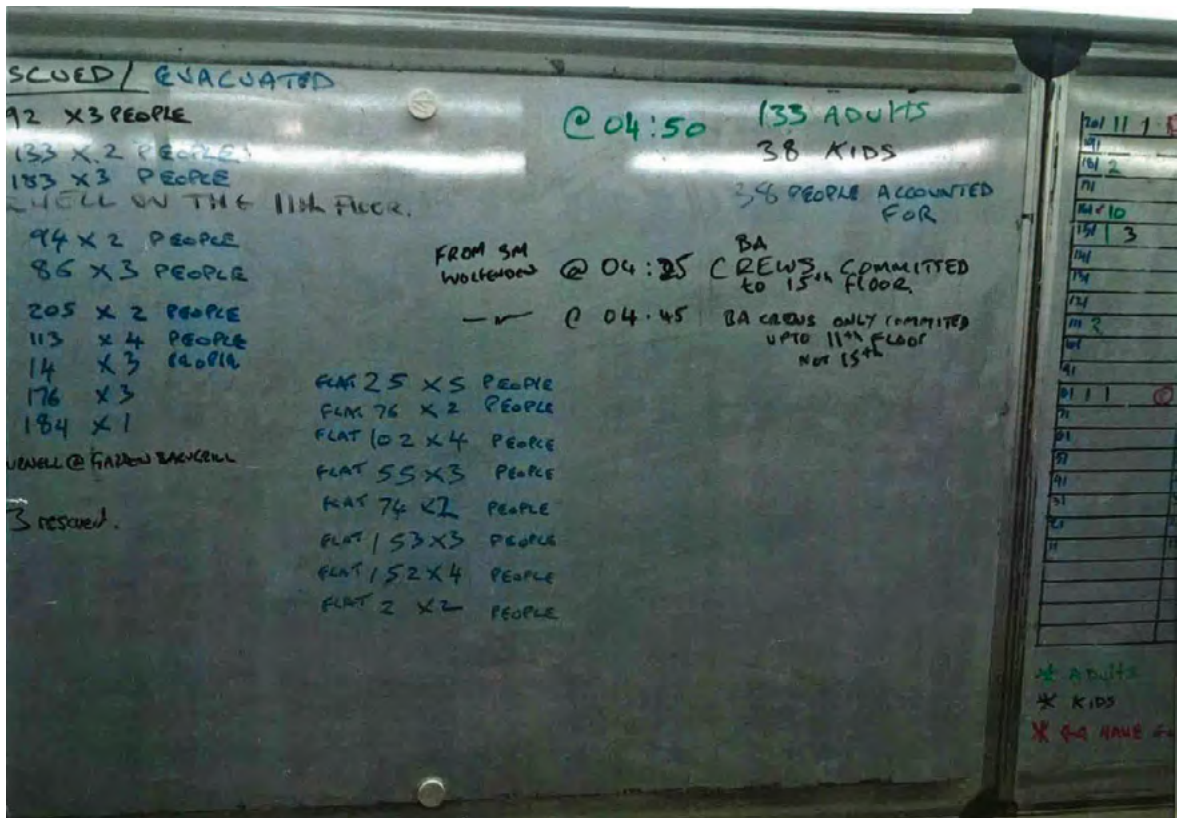 SCUED / EVACUATED
92 X3 PEOPLE
133 X 2 PEOPLE
183 X3 PEOPLE
WELL ON THE 11th FLOOR.
94 X 2 PEOPLE
86 X3 PEOPLE
205 X 2 PEOPLE
113 X 4 PEOPLE
14 X 3 PEOPLE
176 X3
184 X1
URNELL @
3 rescued.
FLAT 25 X5 PEOPLE
FLAT 76 X 2 PEOPLE
FLAT 102 X4 PEOPLE
FLAT 55 X3 PEOPLE
FLAT 74 X2 PEOPLE
FLAT 153X3 PEOPLE
FLAT 152X4 PEOPLE
FLAT 2 X2 PEOPLE
@ 04:50 133 ADULTS
38 KIDS
38 PEOPLE ACCOUNTED
FOR
FROM SM
WOLFENDEN @ 04:25 BA CREWS COMMITTED
to 15th FLOOR.
@ 04.45 BA CREWS ONLY COMMITED
UPTO 11th FLOOR
NOT 15th
20/ 11 1
19/
18/ 2
17/
16/ 10
15/ 1 3
14/
13/
12/
11/ 2
10/
9/
8/ 1 1
7/
6/
5/
3/
2/
1/
* ADULTS
* KIDS
* NAME